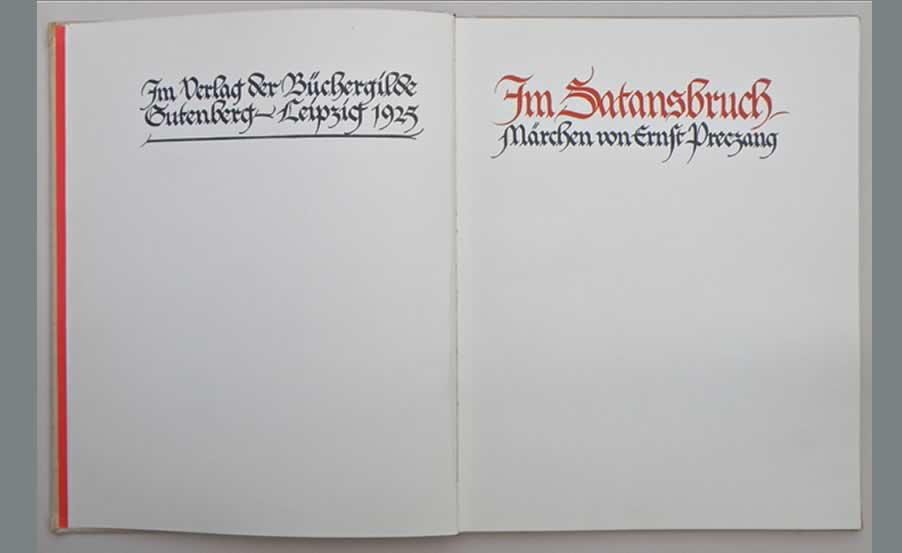 Im Verlag der Büchergilde
Gutenberg – Leipzig 1925
Im Satansbruch
Märchen von Ernst Preczang